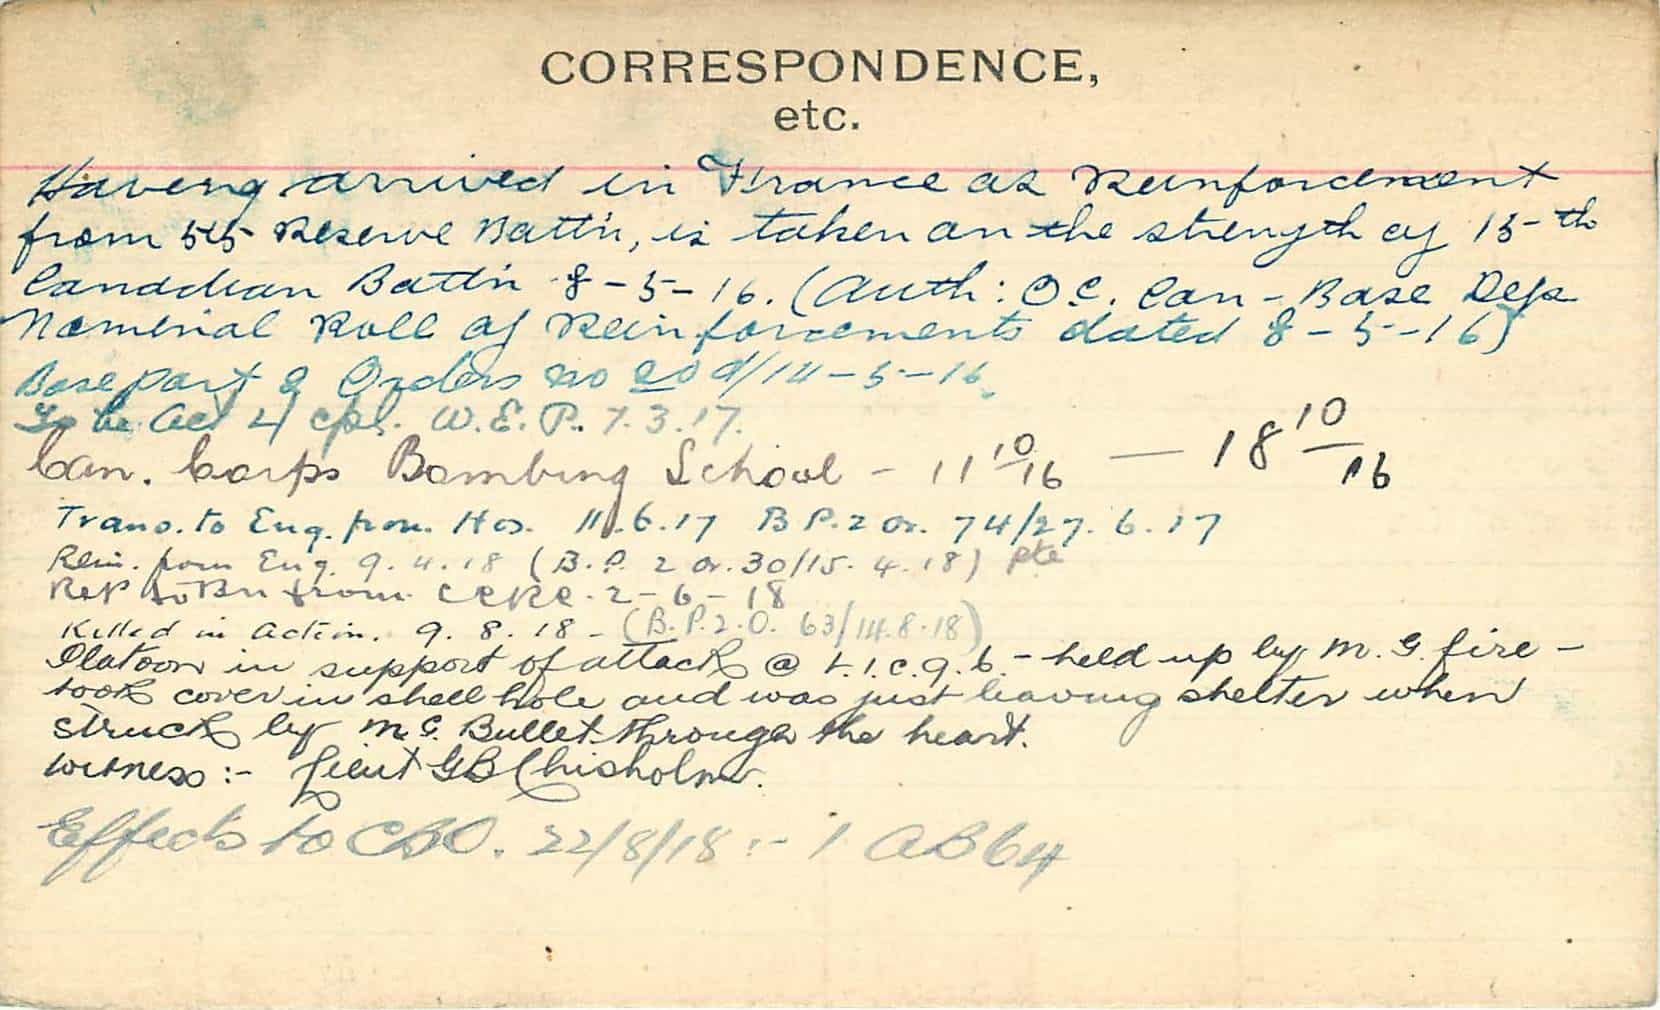 CORRESPONDENCE,
etc.
Having arrived in France as Reinforcement
from 55 Reserve Batt'n, is taken on the strength of 15-th
Canadian Batt'n 8-5-16. (Auth: O.C. Can-Base Dep.
Nominal Roll of Reinforcements dated 8-5-16)
Base part 2 Orders no 20 d/14-5-16.
To be Act L/cpl. W.E.P. 7.3.17.
Can. Corps Bombing School - 11 10/16 — 18 10/16
Trans. to Eng. from Hos. 11.6.17 B P. 2 Or. 74/27.6.17
Rein. from Eng. 9.4.18 (B.P. 2 Or. 30/15.4.18) pte
Rep to Bn from CCRC. 2-6-18
Killed in Action. 9.8.18 - (B.P.2.O. 63/14.8.18)
Platoon in support of attack @ 9.b. - held up by M.G. fire -
took cover in shell hole and was just leaving shelter when
struck by M.G. Bullet through the heart.
Witness:- Lieut GB Chisholm.
Effects to CBO. 22/8/18 :- 1 AB64